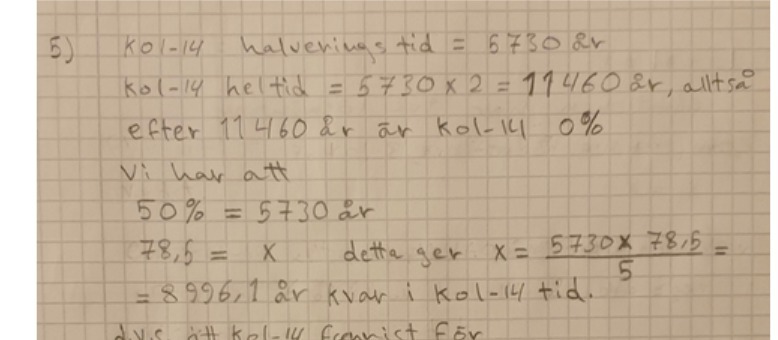 5) Kol-14 halveringstid = 5730 år
Kol-14 heltid = 5730 x 2 = 11460 år, alltså
efter 11460 år är Kol-14 0%
Vi har att
50% = 5730 år
78,5 = x detta ger x = 5730 x 78,5 / 5 =
= 8996,1 år kvar i Kol-14 tid.
d.v.s att Kol-14 för